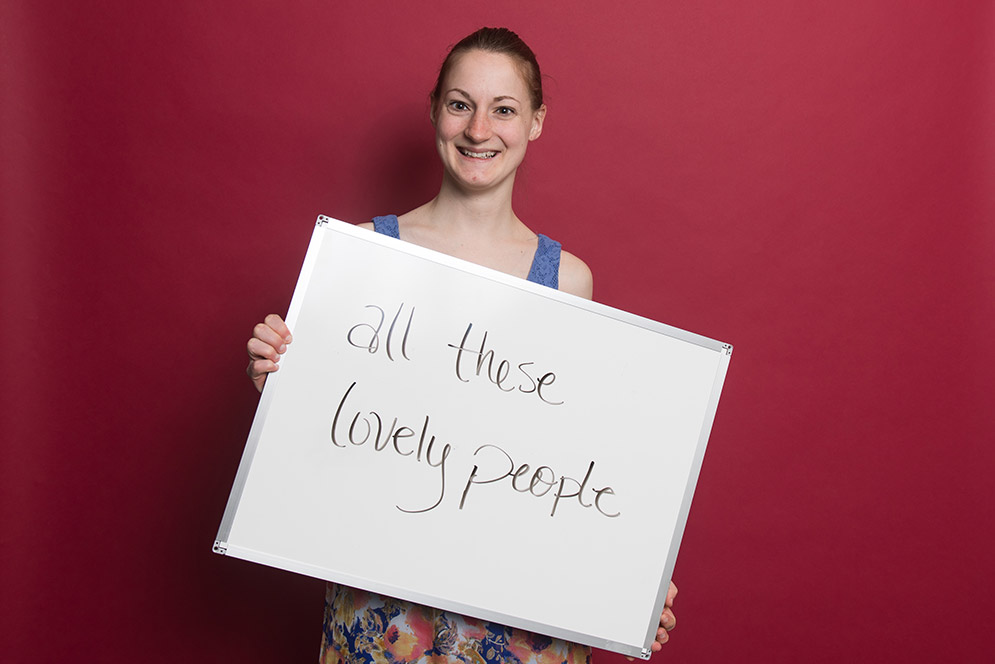 all these
lovely people